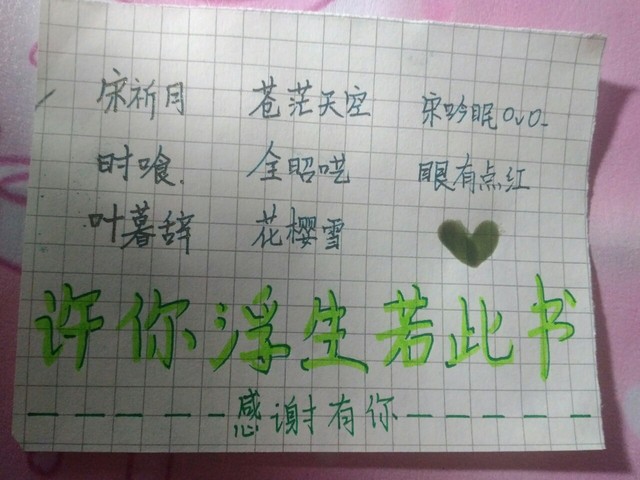 宋祈月 苍茫天空 宋吟眠OvO-
时喰. 全昭哄 眼有点红
叶暮辞 花樱雪
许你浮生若此书
感谢有你